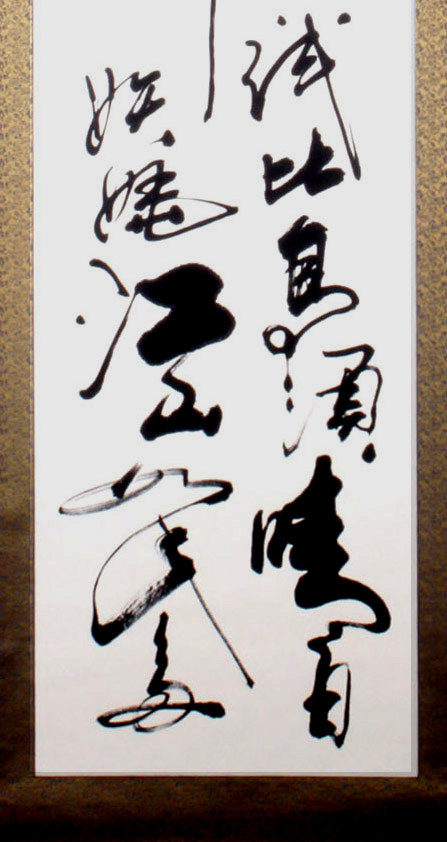 試比高須晴日
妖嬈江山如此多